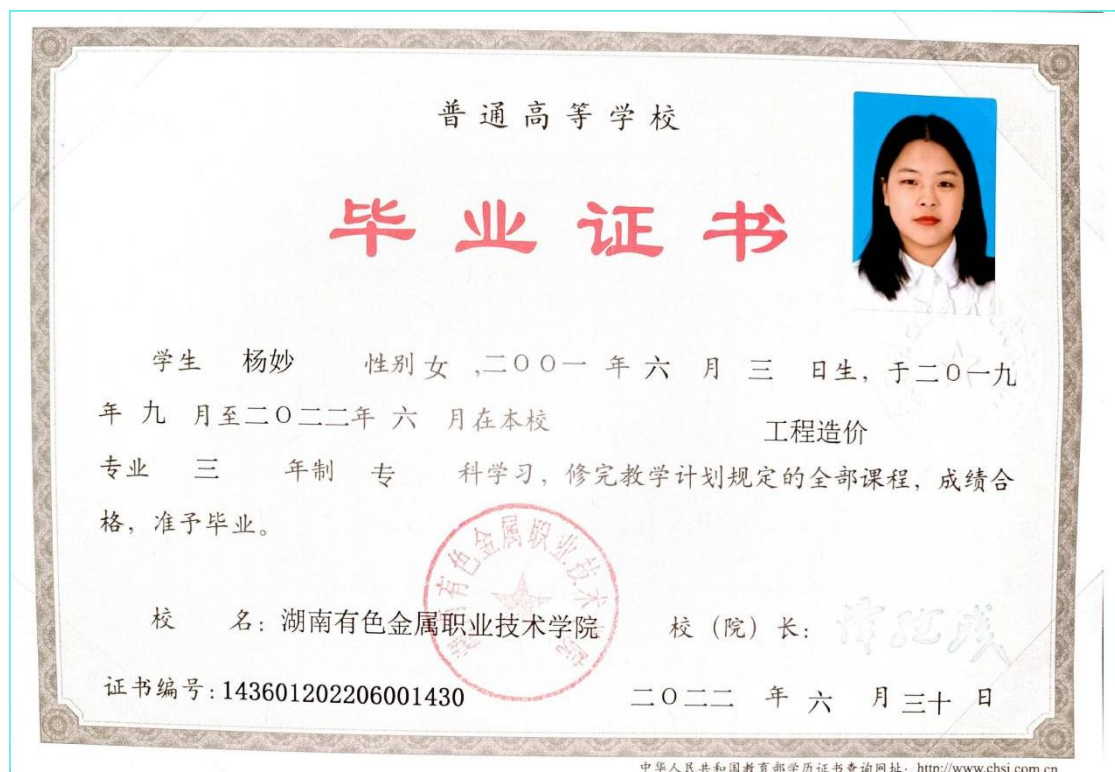 普通高等学校
毕业证书
学生 杨妙 性别 女 ,二〇〇一 年 六 月 三 日生，于二〇一九
年 九 月至二〇二二年 六 月在本校 工程造价
专业 三 年制 专 科学习，修完教学计划规定的全部课程，成绩合
格，准予毕业。
湖南有色金属职业技术学院
校 名：湖南有色金属职业技术学院 校（院）长：
证书编号：143601202206001430 二〇二二 年 六 月 三十 日
中华人民共和国教育部学历证书查询网址：http://www.chsi.com.cn